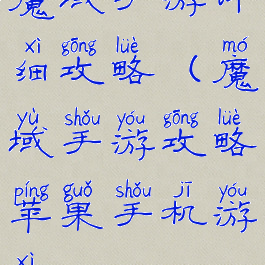 魔域手游详
xì gōng lüè mó
细攻略(魔
yù shǒu yóu gōng lüè
域手游攻略
píng guǒ shǒu jī yóu
苹果手机游
xì